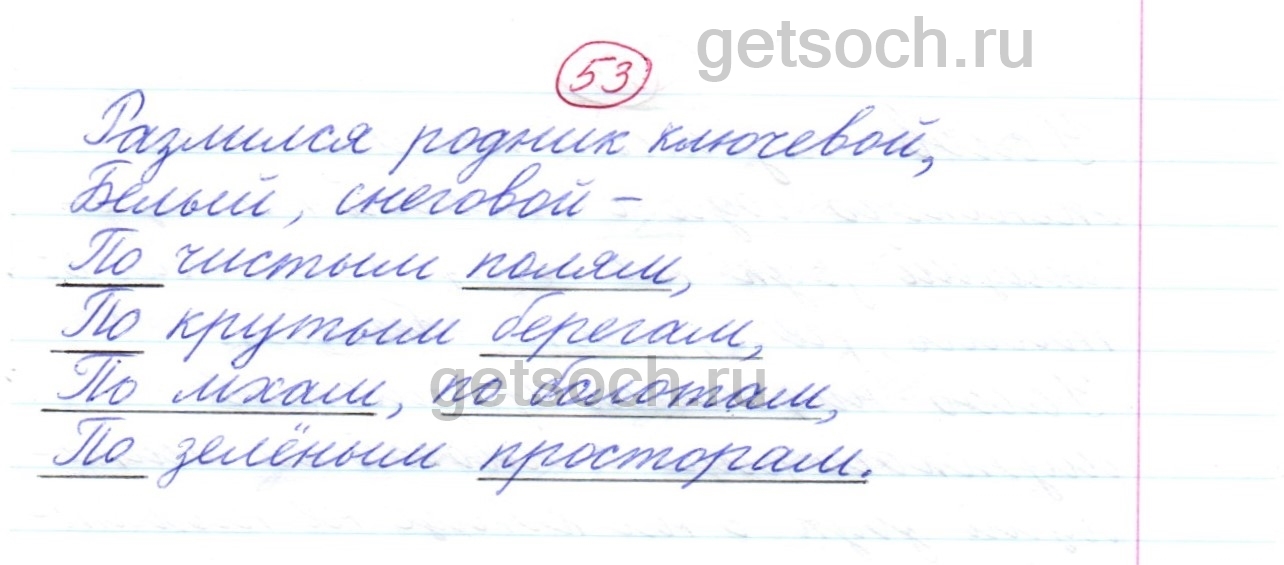 getsoch.ru
53
Разлился родник ключевой,
Белый, снеговой –
По чистым полям,
По крутым берегам,
По мхам, по болотам,
getsoch.ru
По зелёным просторам.